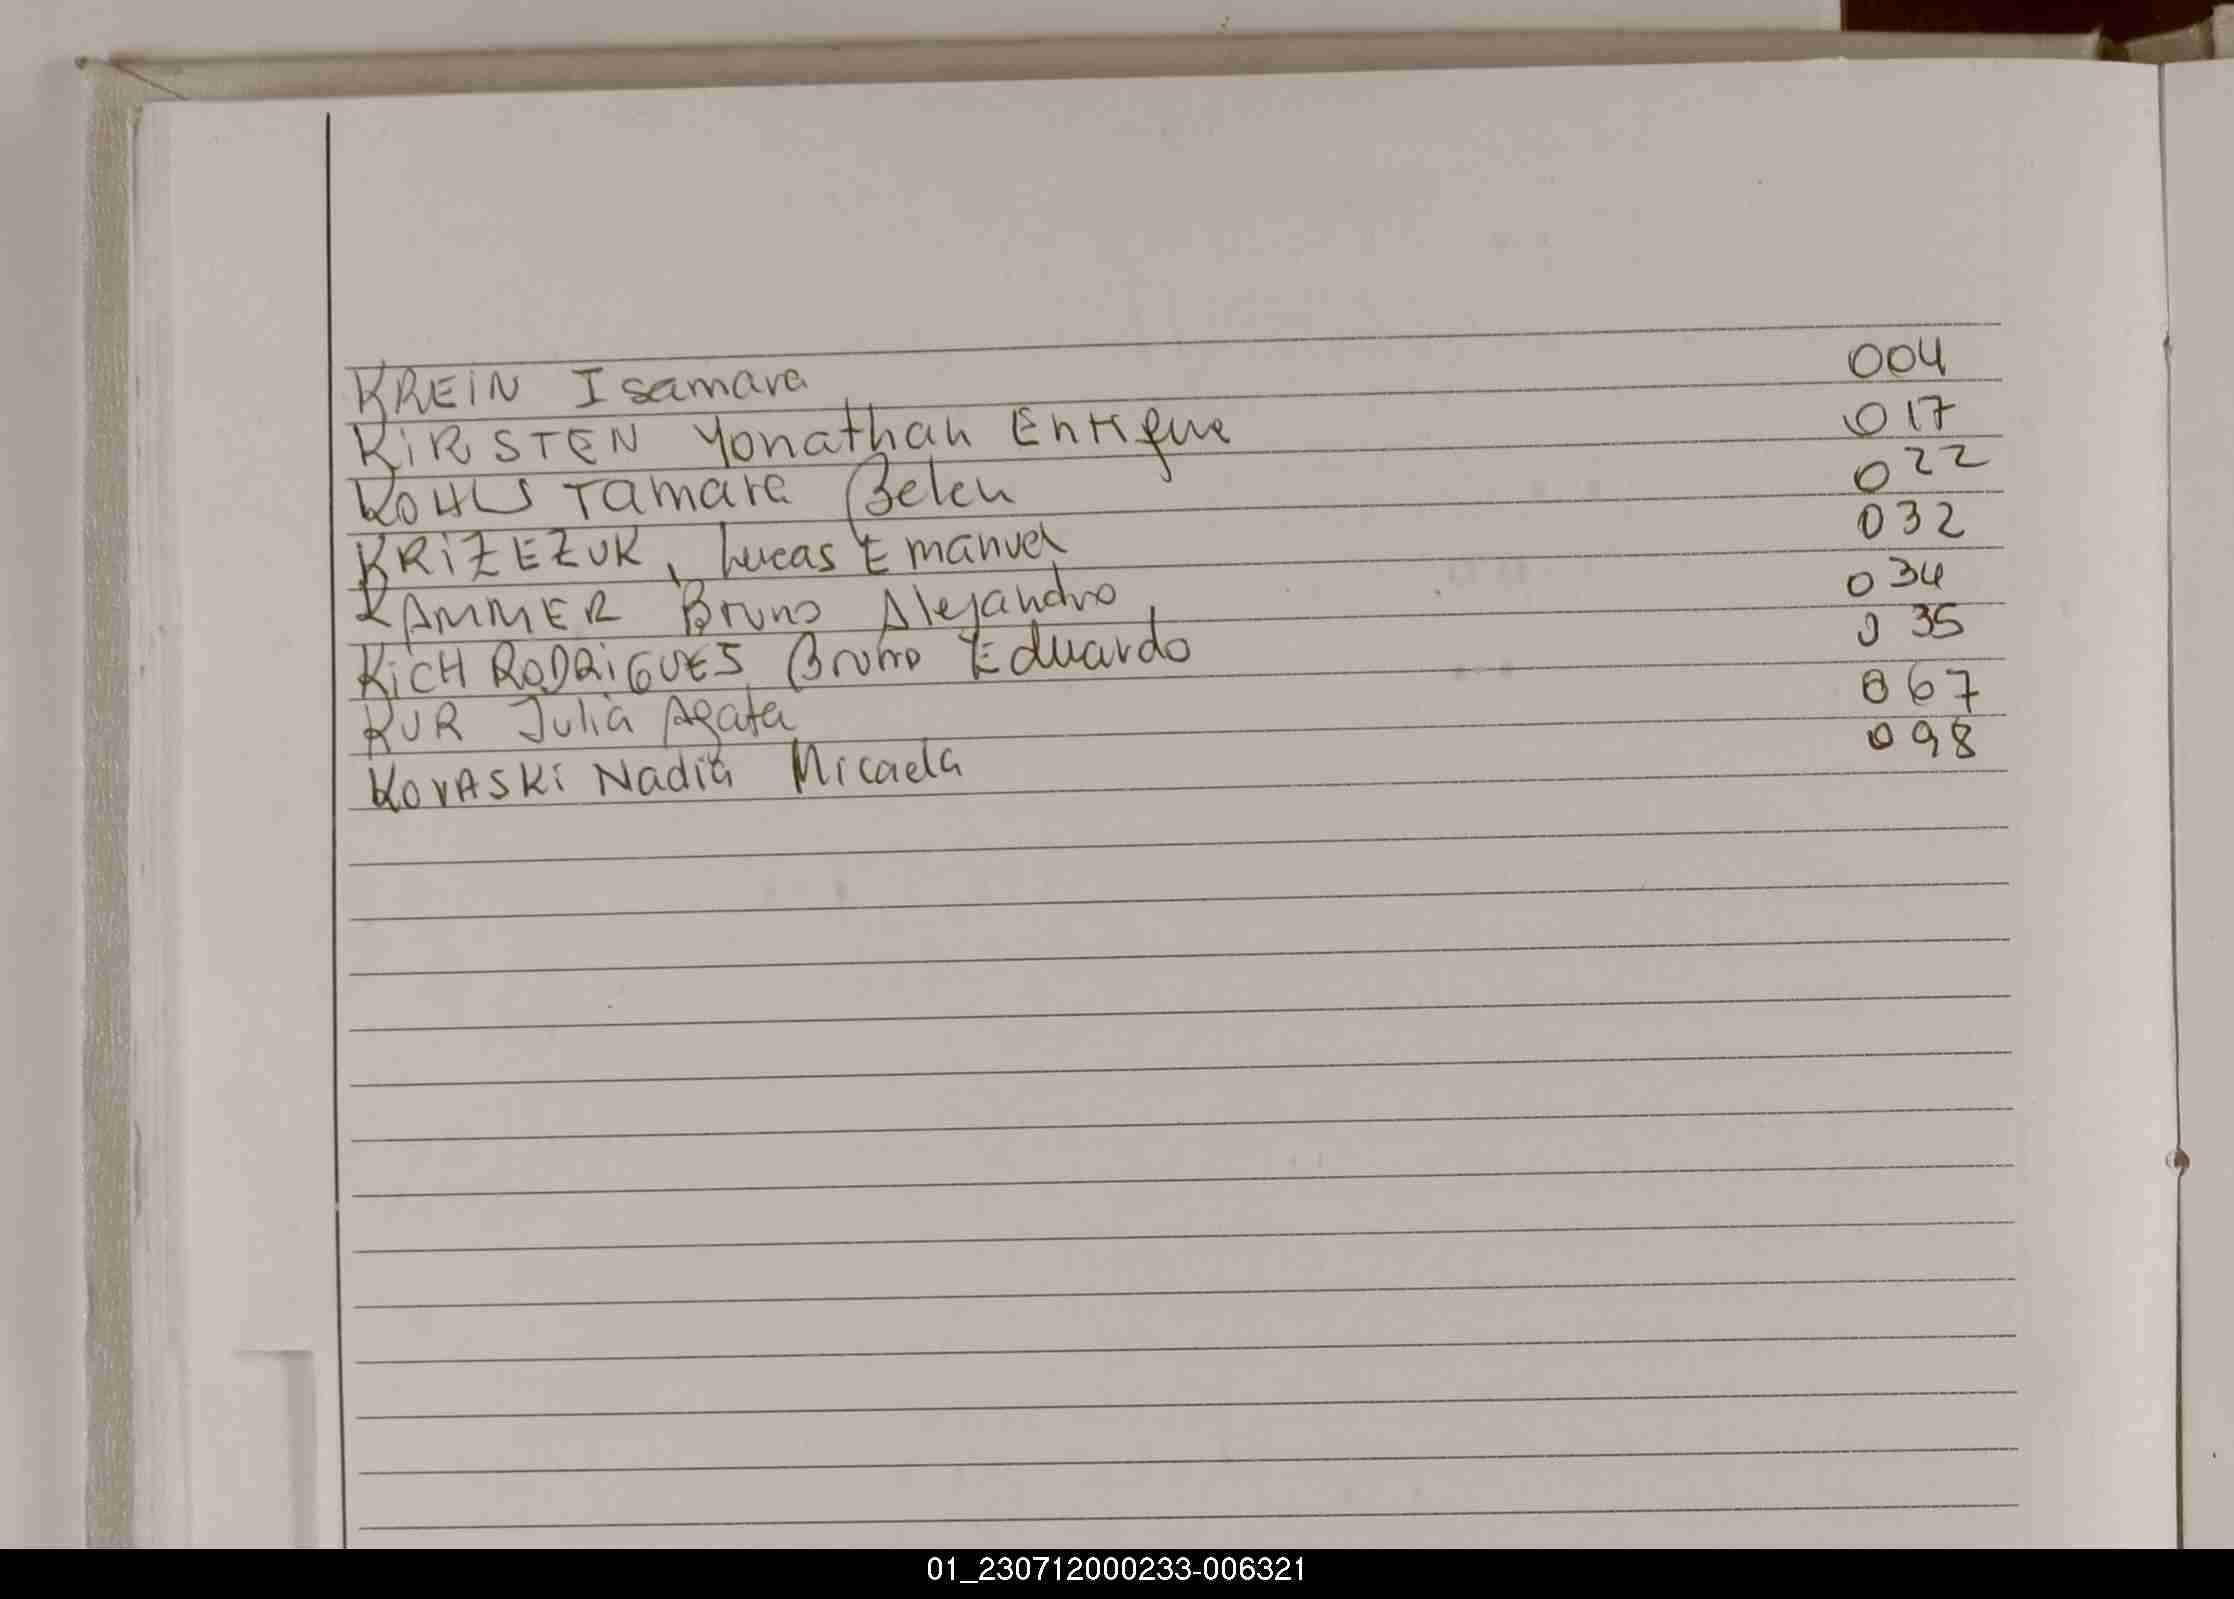 KREIN Isamara 004
KIRSTEN Yonathan Enrique 017
KOHLS Tamara Belen 022
KRIZEZUK, Lucas Emanuel 032
KAMMER Bruno Alejandro 034
KICH RODRIGUES Bruno Eduardo 035
KUR Julia Agata 067
KOVASKI Nadia Micaela 098
01_230712000233-006321